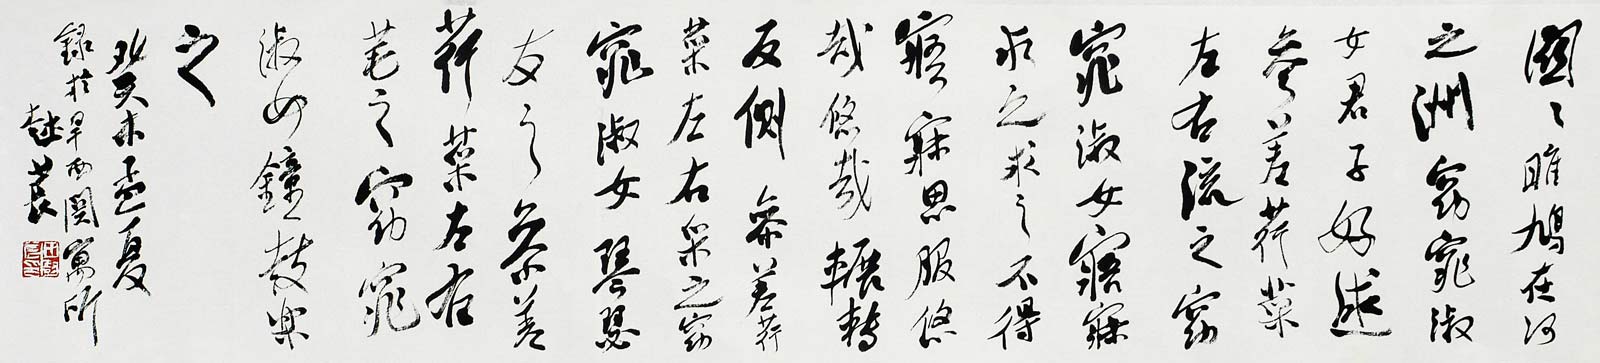 關〻雎鳩在河
之洲窈窕淑
女君子好逑
參差荇菜
左右流之窈
窕淑女寤寐
求之求之不得
寤寐思服悠
哉悠哉輾轉
反側參差荇
菜左右采之窈
窕淑女琴瑟
友之參差
荇菜左右
芼之窈窕
淑女鐘鼓樂
之
癸未孟夏
錄於阜西閣寓所